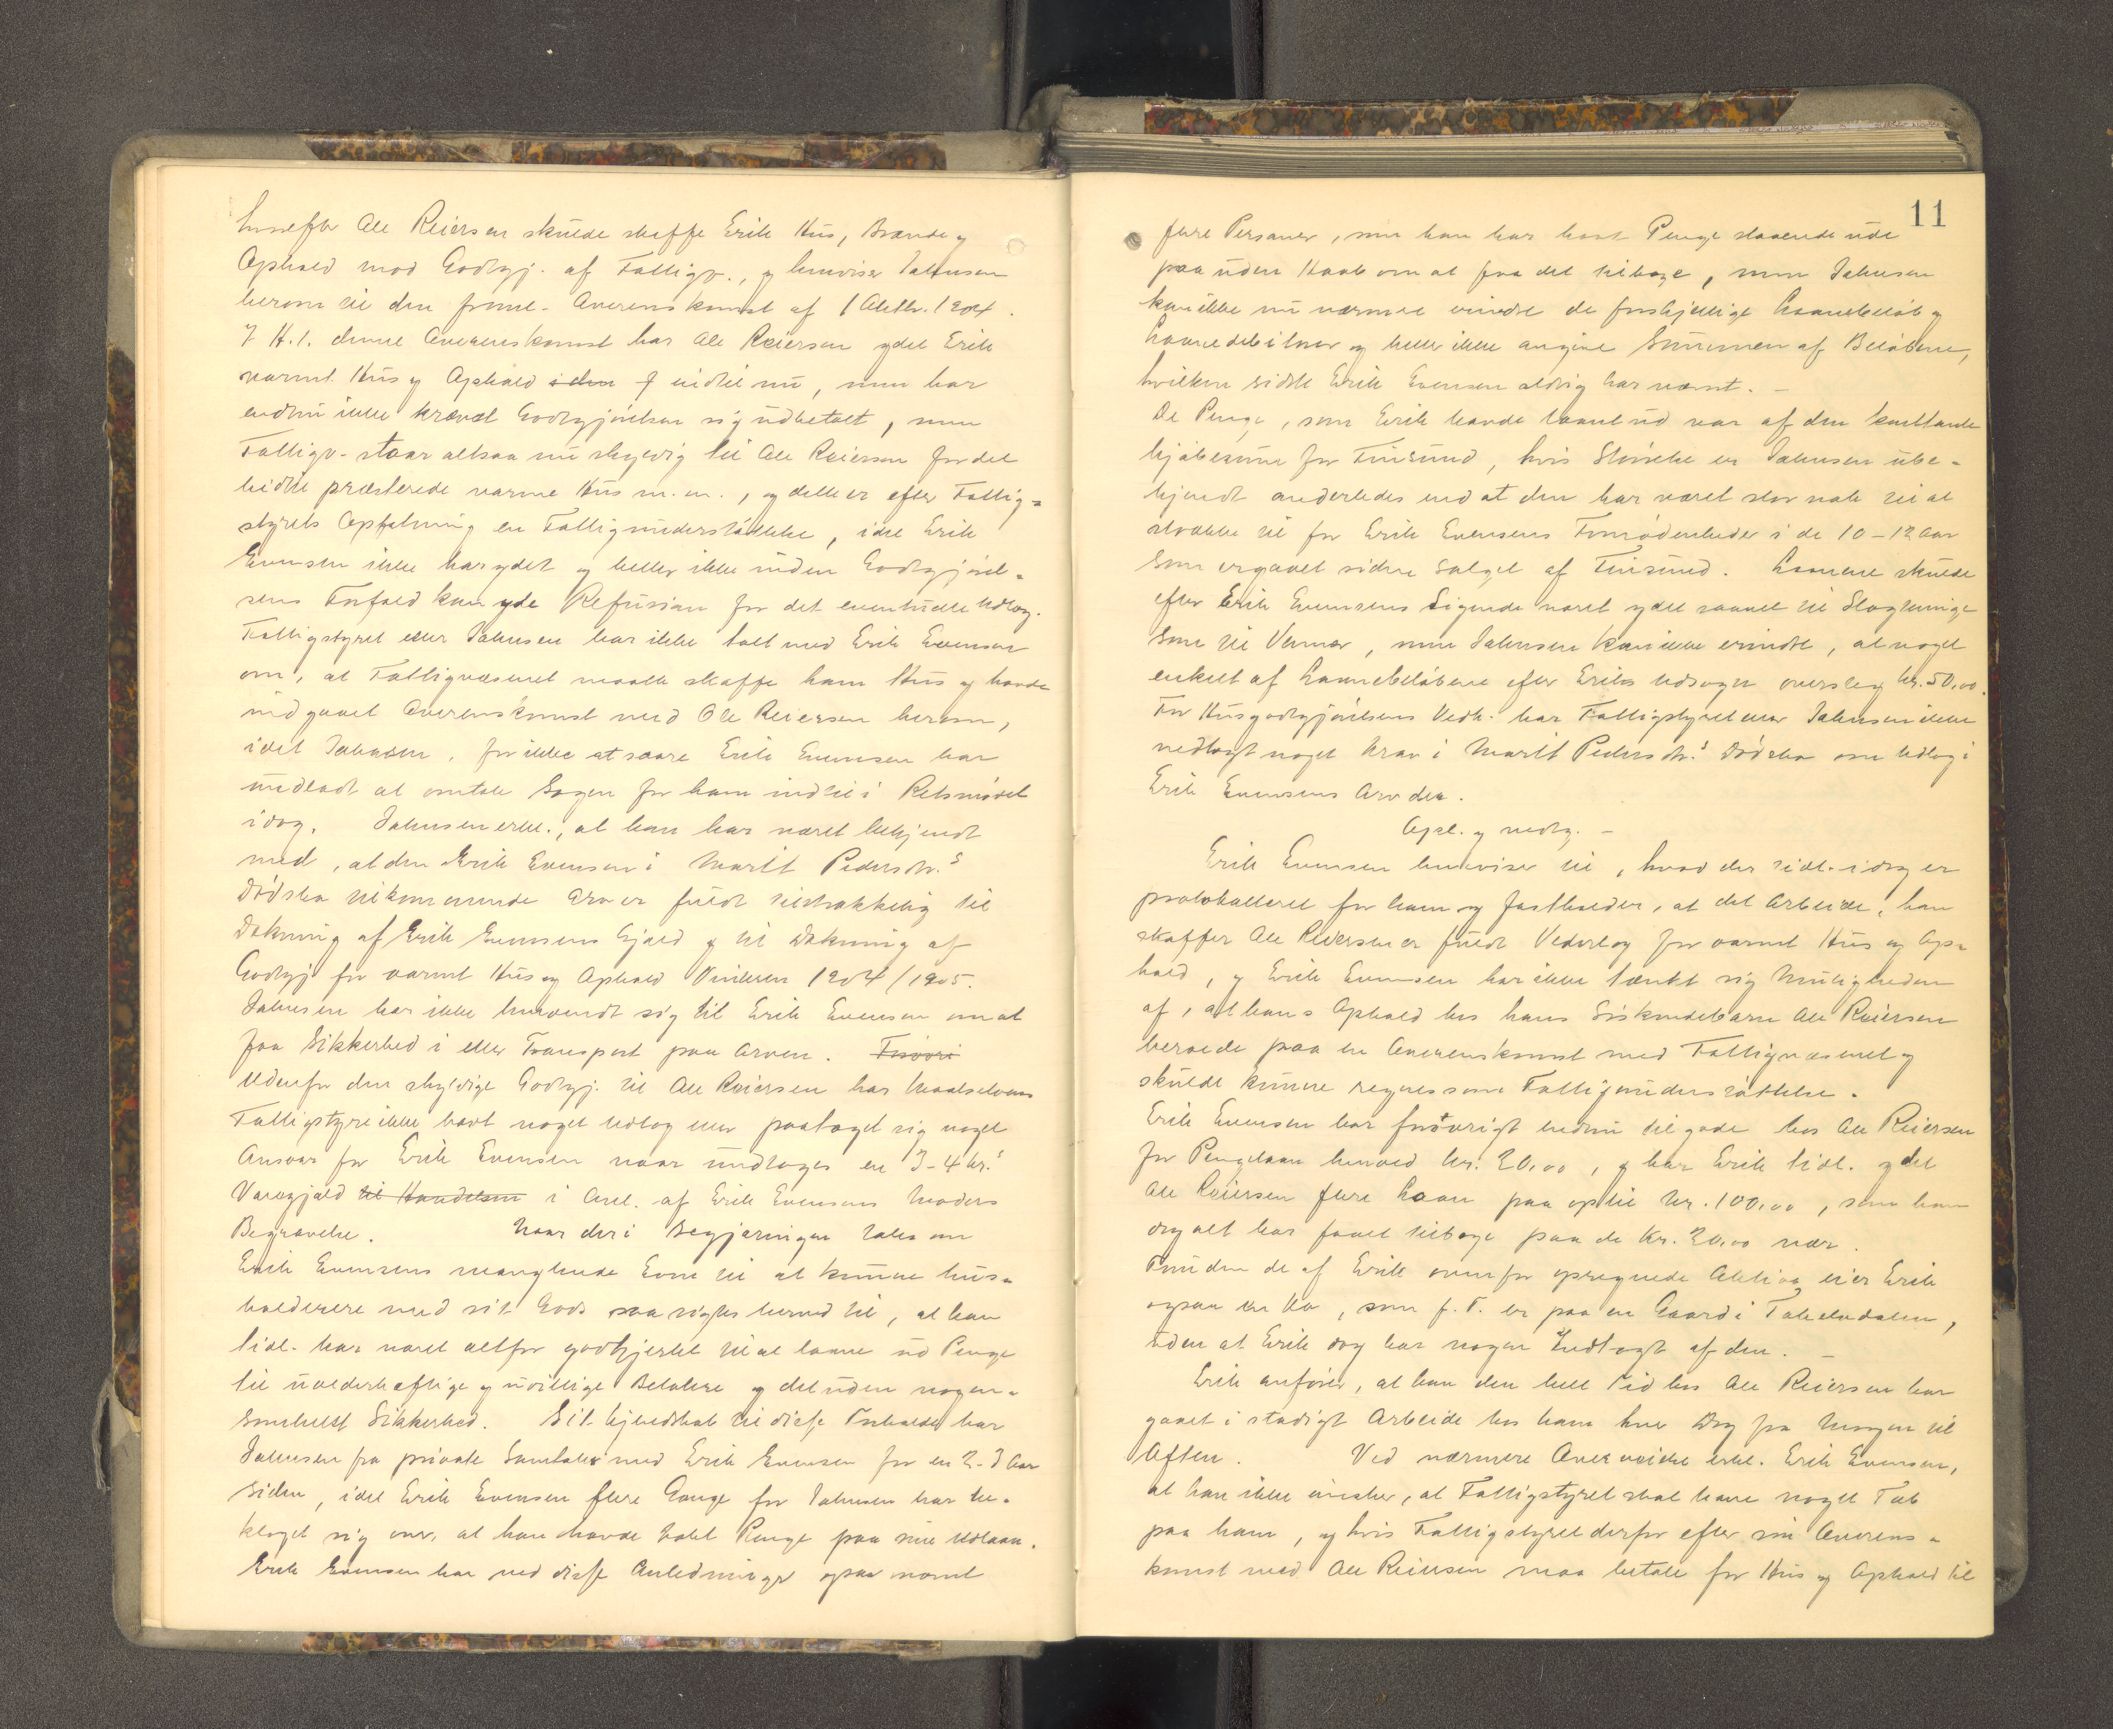 hvorefter Ole Reiersen skulde skaffe Erik Hus, Brænde og
Ophold mod Godtgj. af Fattigv., og henviser Johnsen
herom til den freml. Overenskomst af 1 Oktbr. 1904.
I H.t. denne Overenskomst har Ole Reiersen ydet Erik
varmt Hus og Ophold indtil nu, men har
endnu ikke krævet Godtgjörelsen sig udbetalt, men
Fattigv. staar altsaa nu skyldig til Ole Reiersen for det
hidtil præsterede varme Hus m. m., og dette er efter Fattig-
styrets Opfatning en Fattigunderstöttelse, idet Erik
Evensen ikke har ydet og heller ikke inden Godtgjörel-
sens Forfald kan yde Refusion for det eventuelle Udlæg.
Fattigstyret eller Johnsen har ikke talt med Erik Evensen
om, at Fattigvæsenet maatte skaffe ham Hus og havde
indgaaet Overenskomst med Ole Reiersen herom,
idet Johnsen, for ikke at saare Erik Evensen har
undladt at omtale Sagen for ham indtil i Retsmödet
idag. Johnsen erkl., at han har været bekjendt
med, at den Erik Evensen i Marit Pedersdtr.s
Dödsbo tilkommende Arv er fuldt tilstrækkelig til
Dækning af Erik Evensens Gjæld og til Dækning af
Godtgj. for varmt Hus og Ophold Vinteren 1904/1905.
Johnsen har ikke henvendt sig til Erik Evensen om at
faa Sikkerhed i eller Transport paa Arven.
Udenfor den skyldige Godtgj. til Ole Reiersen har Maalselvens
Fattigstyre ikke havt noget Udlæg eller paataget sig noget
Ansvar for Erik Evensen naar undtages en 3-4 kr.s
Varegjæld til Handelsm i Anl. af Erik Evensens Moders
Begravelse. Naar der i Begjæringen tales om
Erik Evensens manglende Evne til at kunne hus-
holderere med sit Gods saa sigtes herved til, at han
tidl. har været altfor godhjertet til at laane ud Penge
til uvederhæftige og uvillige Betalere og det uden nogen-
somhelst Sikkerhed. Sit Kjendskab til disse Forholde har
Johnsen fra private Samtaler med Erik Evensen for en 2-3 Aar
siden, idet Erik Evensen flere Gange for Johnsen har be-
klaget sig over, at han havde tabt Penge paa sine Udlaan.
Erik Evensen har ved disse Anledninger ogsaa nævnt
11
flere Personer, som han har havt Penge staaende ude
paa uden Haab om at faa det tilbage, men Johnsen
kan ikke nu nærmere erindre de forskjellige Laanebelöb og
Laanedebitorer og heller ikke angive Summen af Belöbene,
hvilken sidste Erik Evensen aldrig har nævnt. –
De Penge, som Erik havde laant ud var af den kontante
Kjöbesum for Finsund, hvis Störrelse er Johnsen ube-
kjendt anderledes end at den har været stor nok til at
strække til for Erik Evensens Fornödenheder i de 10–12 Aar
som er gaaet siden Salget af Finsund. Laanene skulde
efter Erik Evensens Sigende været ydet saavel til Slægtninge
som til Venner, men Johnsen kan ikke erindre, at noget
enkelt af Laanebelöbene efter Eriks Udsagn oversteg kr. 50,00.
For Husgodtgjörelsens Vedk. har Fattigstyret eller Johnsen ikke
nedlagt noget Krav i Marit Pedersdtr.s Dödsbo om Udlæg i
Erik Evensens Arvdel.
Opl. og vedtg. –
Erik Evensen henviser til, hvad der tidl. idag er
protokolleret for ham og fastholder, at det Arbeide, han
skaffer Ole Reiersen er fuldt Vederlag for varmt Hus og Op-
hold, og Erik Evensen har ikke tænkt sig Muligheden
af, at hans Ophold hos hans Söskendebarn Ole Reiersen
beroede paa en Overenskomst med Fattigvæsenet og
skulde kunne regnes som Fattigunderstöttelse.
Erik Evensen har forövrigt endnu tilgode hos Ole Reiersen
for Pengelaan henved kr. 20,00, og har Erik tidl. ydet
Ole Reiersen flere Laan paa optil kr. 100,00, som han
dog alt har faaet tilbage paa de Kr. 20,00 nær.
Foruden de af Erik ovenfor opregnede Aktiva eier Erik
ogsaa en Ko, som f. T. er paa en Gaard i Takelvdalen,
uden at Erik dog har nogen Indtægt af den. –
Erik anförer, at han den hele Tid hos Ole Reiersen har
gaaet i stadigt Arbeide hos ham hver Dag fra Morgen til
Aften. Ved nærmere Overveielse erkl. Erik Evensen,
at han ikke önsker, at Fattigstyret skal have noget Tab
paa ham, og hvis Fattigstyret derfor efter sin Overens-
komst med Ole Reiersen maa betale for Hus og Ophold til